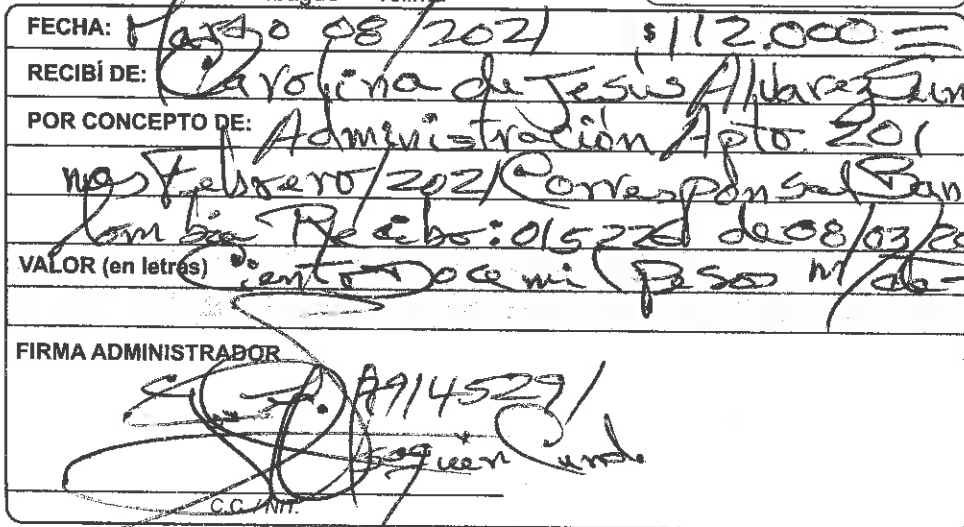 FECHA: Marzo 08/2021 $112.000=
RECIBÍ DE: Carolina de Jesús Alvarez
POR CONCEPTO DE: Administración Apto. 201
mes Febrero/2021 Corresponsal Ban
lombia Recibo: 015226 de 08/03/20
VALOR (en letras) Ciento Doce mil Pesos M/cte=
FIRMA ADMINISTRADOR
C.C. / NIT.